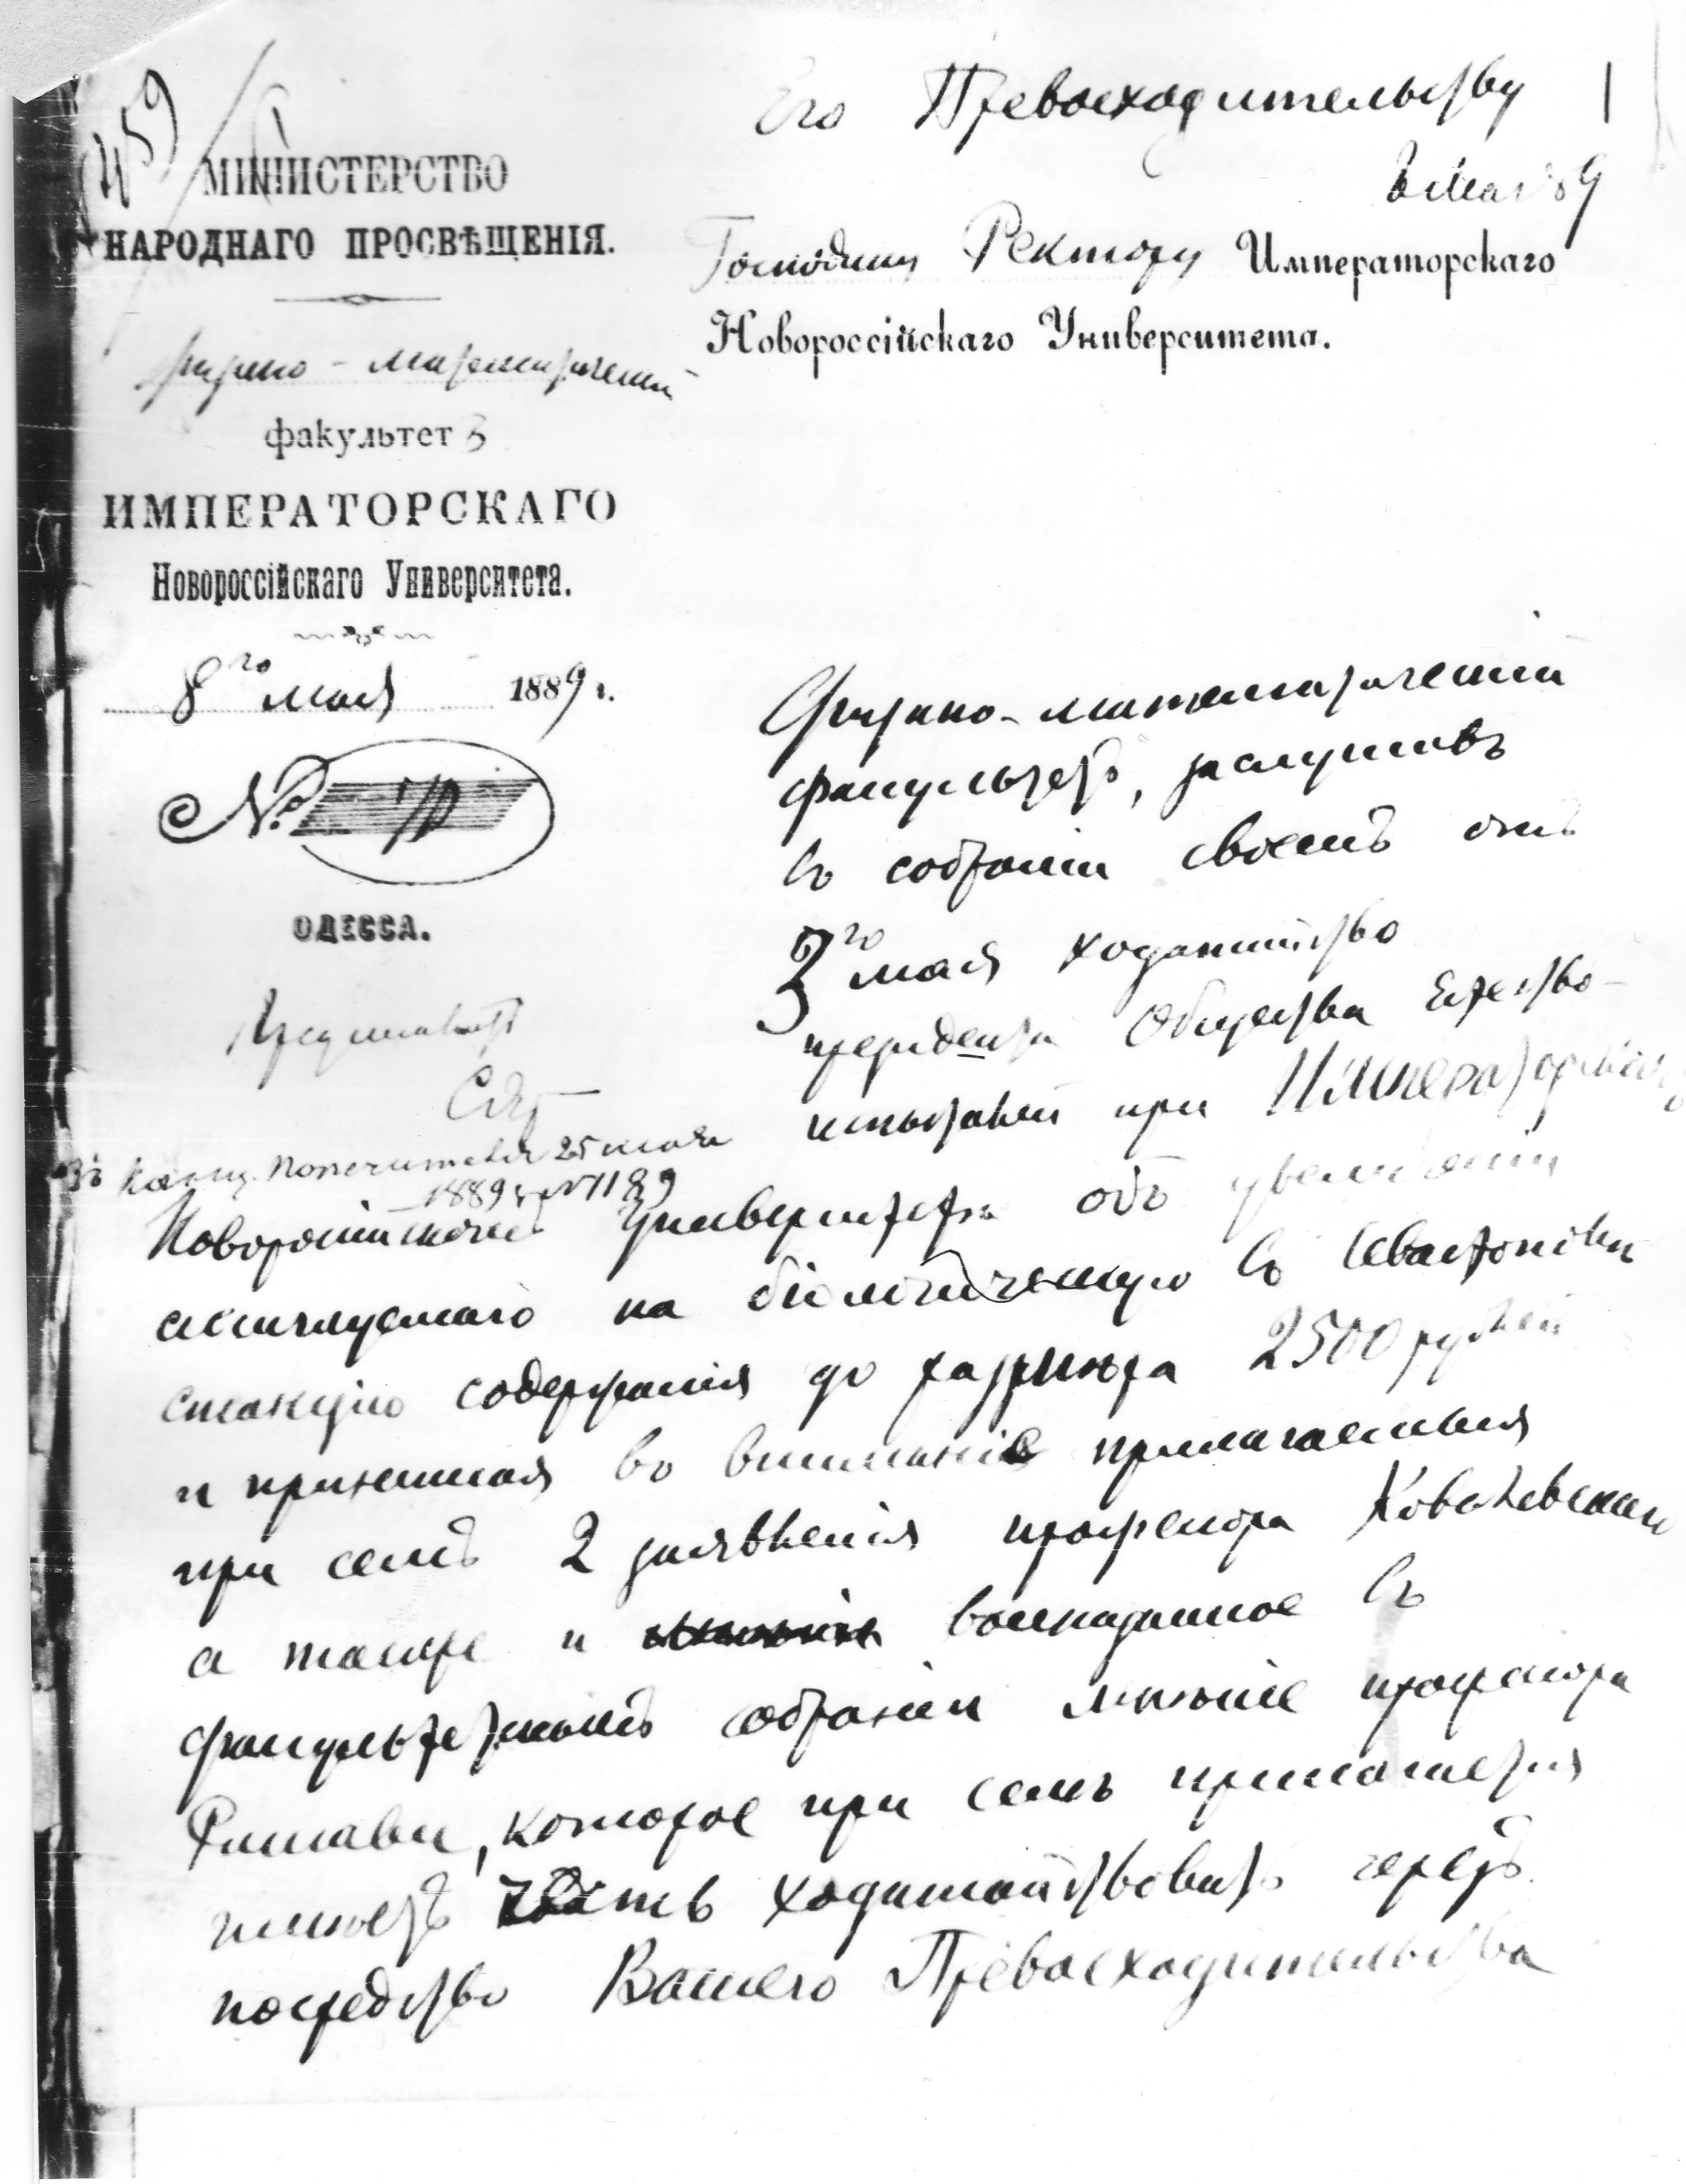 459
МИНИСТЕРСТВО
НАРОДНАГО ПРОСВѢЩЕНІЯ.
Физико-математическій
факультетъ
ИМПЕРАТОРСКАГО
Новороссійскаго Университета.
8го мая 1889 г.
№
ОДЕССА.
Его Превосходительству
1
8 Мая 89
Господину Ректору Императорскаго
Новороссійскаго Университета.
Физико-математическій
факультетъ, заслушавъ
въ собраніи своемъ отъ
3го мая ходатайство
президента Общества Естество-
испытателей при Императорскомъ
Въ канц. Попечителя 25 мая
1889 г. № 1189
Новороссійскомъ Университетѣ объ увеличеніи
ассигнуемаго на біологическую въ Севастополѣ
станцію содержанія до размѣра 2500 рублей
и принимая во вниманіе прилагаемыя
при семъ 2 заявленія профессора Ковалевскаго
а также и высказанное въ
факультетскомъ собраніи мнѣніе профессора
Ришави, которое при семъ прилагается
имѣетъ честь ходатайствовать черезъ
посредство Вашего Превосходительства